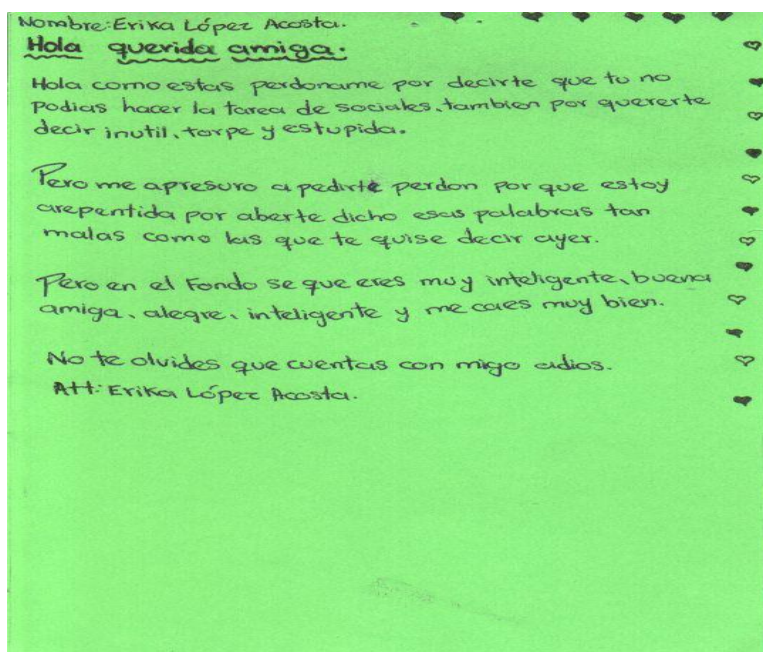 Nombre: Erika López Acosta.
Hola querida amiga.
Hola como estas perdoname por decirte que tu no
podias hacer la tarea de sociales, tambien por quererte
decir inutil, torpe y estupida.
Pero me apresuro a pedirte perdon por que estoy
arepentida por aberte dicho esas palabras tan
malas como las que te quise decir ayer.
Pero en el Fondo se que eres muy inteligente, buena
amiga, alegre, inteligente y me caes muy bien.
No te olvides que cuentas con migo adios.
Att: Erika López Acosta.